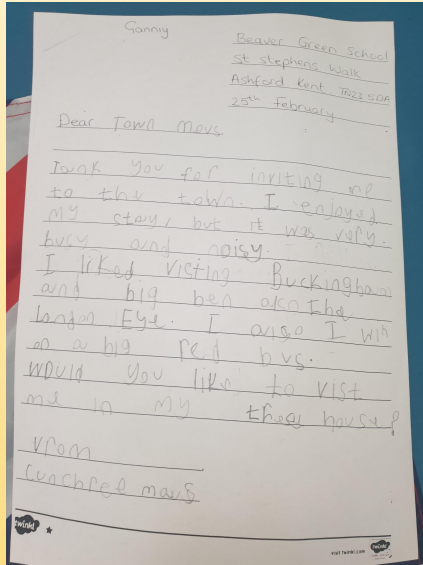 Ganniy
Beaver Green School
St Stephens Walk
Ashford Kent TN23 5DA
25th February
Dear Town mous
Tank you for inviting me
to the town. I enjoyed
my stay, but it was very.
busy and noisy.
I liked visting Buckingham
and big ben akn the
landan Eye. I anso I win
on a big red bus.
would you like to vist
me in my thea house?
vrom
cunchree maus
twinkl
visit twinkl.com
twinkl